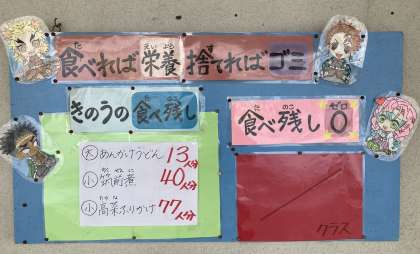 食べれば栄養捨てればゴミ
きのうの食べ残し
大 あんかけうどん 13人分
小 筑前煮 40人分
小 高菜ふりかけ 77人分
食べ残し0
クラス